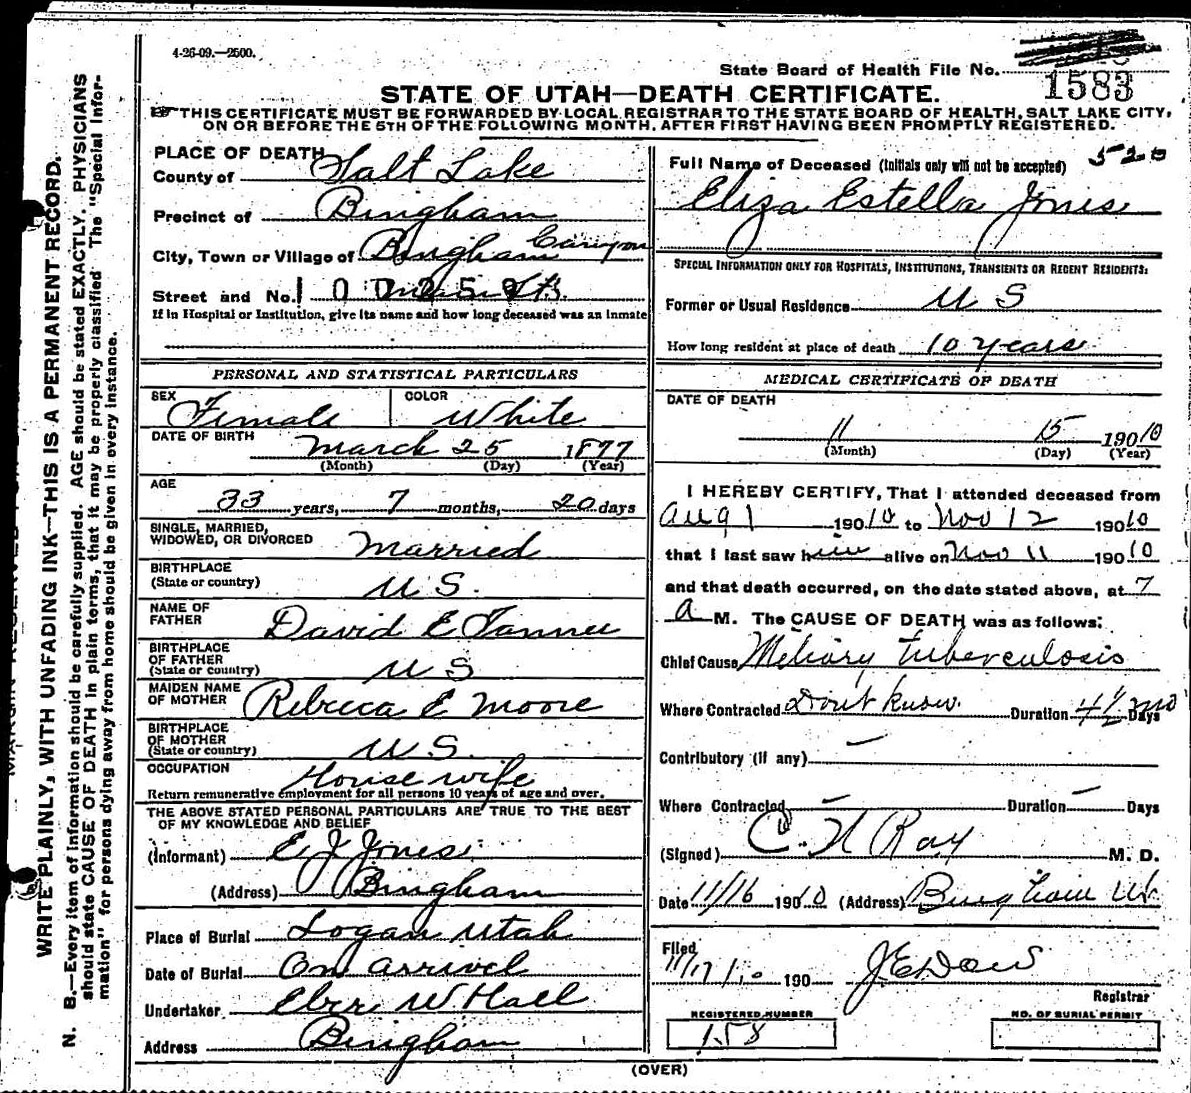 4-26-09.—2500.
State Board of Health File No.
1583
STATE OF UTAH—DEATH CERTIFICATE.
THIS CERTIFICATE MUST BE FORWARDED BY LOCAL REGISTRAR TO THE STATE BOARD OF HEALTH, SALT LAKE CITY,
ON OR BEFORE THE 5TH OF THE FOLLOWING MONTH, AFTER FIRST HAVING BEEN PROMPTLY REGISTERED.
PLACE OF DEATH
County of Salt Lake
Precinct of Bingham
City, Town or Village of Bingham Canyon
Street and No. Main St.
1002259
If in Hospital or Institution, give its name and how long deceased was an inmate
PERSONAL AND STATISTICAL PARTICULARS
SEX Female COLOR White
DATE OF BIRTH March 25 1877
(Month) (Day) (Year)
AGE
33 years, 7 months, 20 days
SINGLE, MARRIED,
WIDOWED, OR DIVORCED Married
BIRTHPLACE
(State or country) U S.
NAME OF
FATHER David E Tanner
BIRTHPLACE
OF FATHER
(State or country) U S
MAIDEN NAME
OF MOTHER Rebecca E Moore
BIRTHPLACE
OF MOTHER
(State or country) U S.
OCCUPATION House wife
Return remunerative employment for all persons 10 years of age and over.
THE ABOVE STATED PERSONAL PARTICULARS ARE TRUE TO THE BEST
OF MY KNOWLEDGE AND BELIEF
(Informant) E J Jones
(Address) Bingham
Place of Burial Logan Utah
Date of Burial On arrivel
Undertaker Eber W Hall
Address Bingham
Full Name of Deceased (Initials only will not be accepted) 520
Eliza Estella Jones
SPECIAL INFORMATION ONLY FOR HOSPITALS, INSTITUTIONS, TRANSIENTS OR RECENT RESIDENTS:
Former or Usual Residence U S
How long resident at place of death 10 years
MEDICAL CERTIFICATE OF DEATH
DATE OF DEATH
11 15 19010
(Month) (Day) (Year)
I HEREBY CERTIFY, That I attended deceased from
Aug 1 19010 to Nov 12 19010
that I last saw him alive on Nov 11 19010
and that death occurred, on the date stated above, at 7
a M. The CAUSE OF DEATH was as follows:
Chief Cause Meliary tuberculosis
Where Contracted Dont know. Duration 4½ mo Days
Contributory (if any) —
Where Contracted — Duration — Days
(Signed) C. N Ray M. D.
Date 11/16 19010 (Address) Bingham Ut
Filed
11/17/10 190 J E Dow
Registrar
REGISTERED NUMBER
158
NO. OF BURIAL PERMIT
(OVER)
WRITE PLAINLY, WITH UNFADING INK—THIS IS A PERMANENT RECORD.
N. B.—Every item of information should be carefully supplied. AGE should be stated EXACTLY. PHYSICIANS
should state CAUSE OF DEATH in plain terms, that it may be properly classified. The "Special Infor-
mation" for persons dying away from home should be given in every instance.